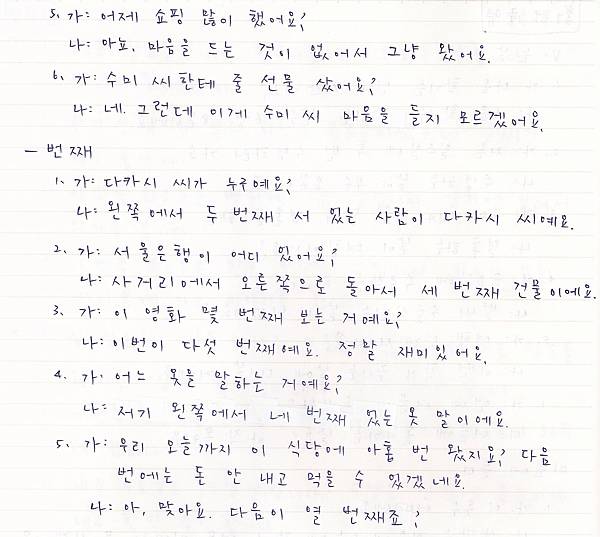 5. 가: 어제 쇼핑 많이 했어요?
나: 아뇨, 마음을 드는 것이 없어서 그냥 왔어요.
6. 가: 수미 씨한테 줄 선물 샀어요?
나: 네. 그런데 이게 수미 씨 마음을 들지 모르겠어요.
- 번째
1. 가: 다카시 씨가 누구예요?
나: 왼쪽에서 두 번째 서 있는 사람이 다카시 씨예요.
2. 가: 서울은행이 어디 있어요?
나: 사거리에서 오른쪽으로 돌아서 세 번째 건물이에요.
3. 가: 이 영화 몇 번째 보는 거예요?
나: 이번이 다섯 번째예요. 정말 재미있어요.
4. 가: 어느 옷을 말하는 거예요?
나: 저기 왼쪽에서 네 번째 있는 옷 말이에요.
5. 가: 우리 오늘까지 이 식당에 아홉 번 왔지요? 다음
번에는 돈 안 내고 먹을 수 있겠네요.
나: 아, 맞아요. 다음이 열 번째죠?